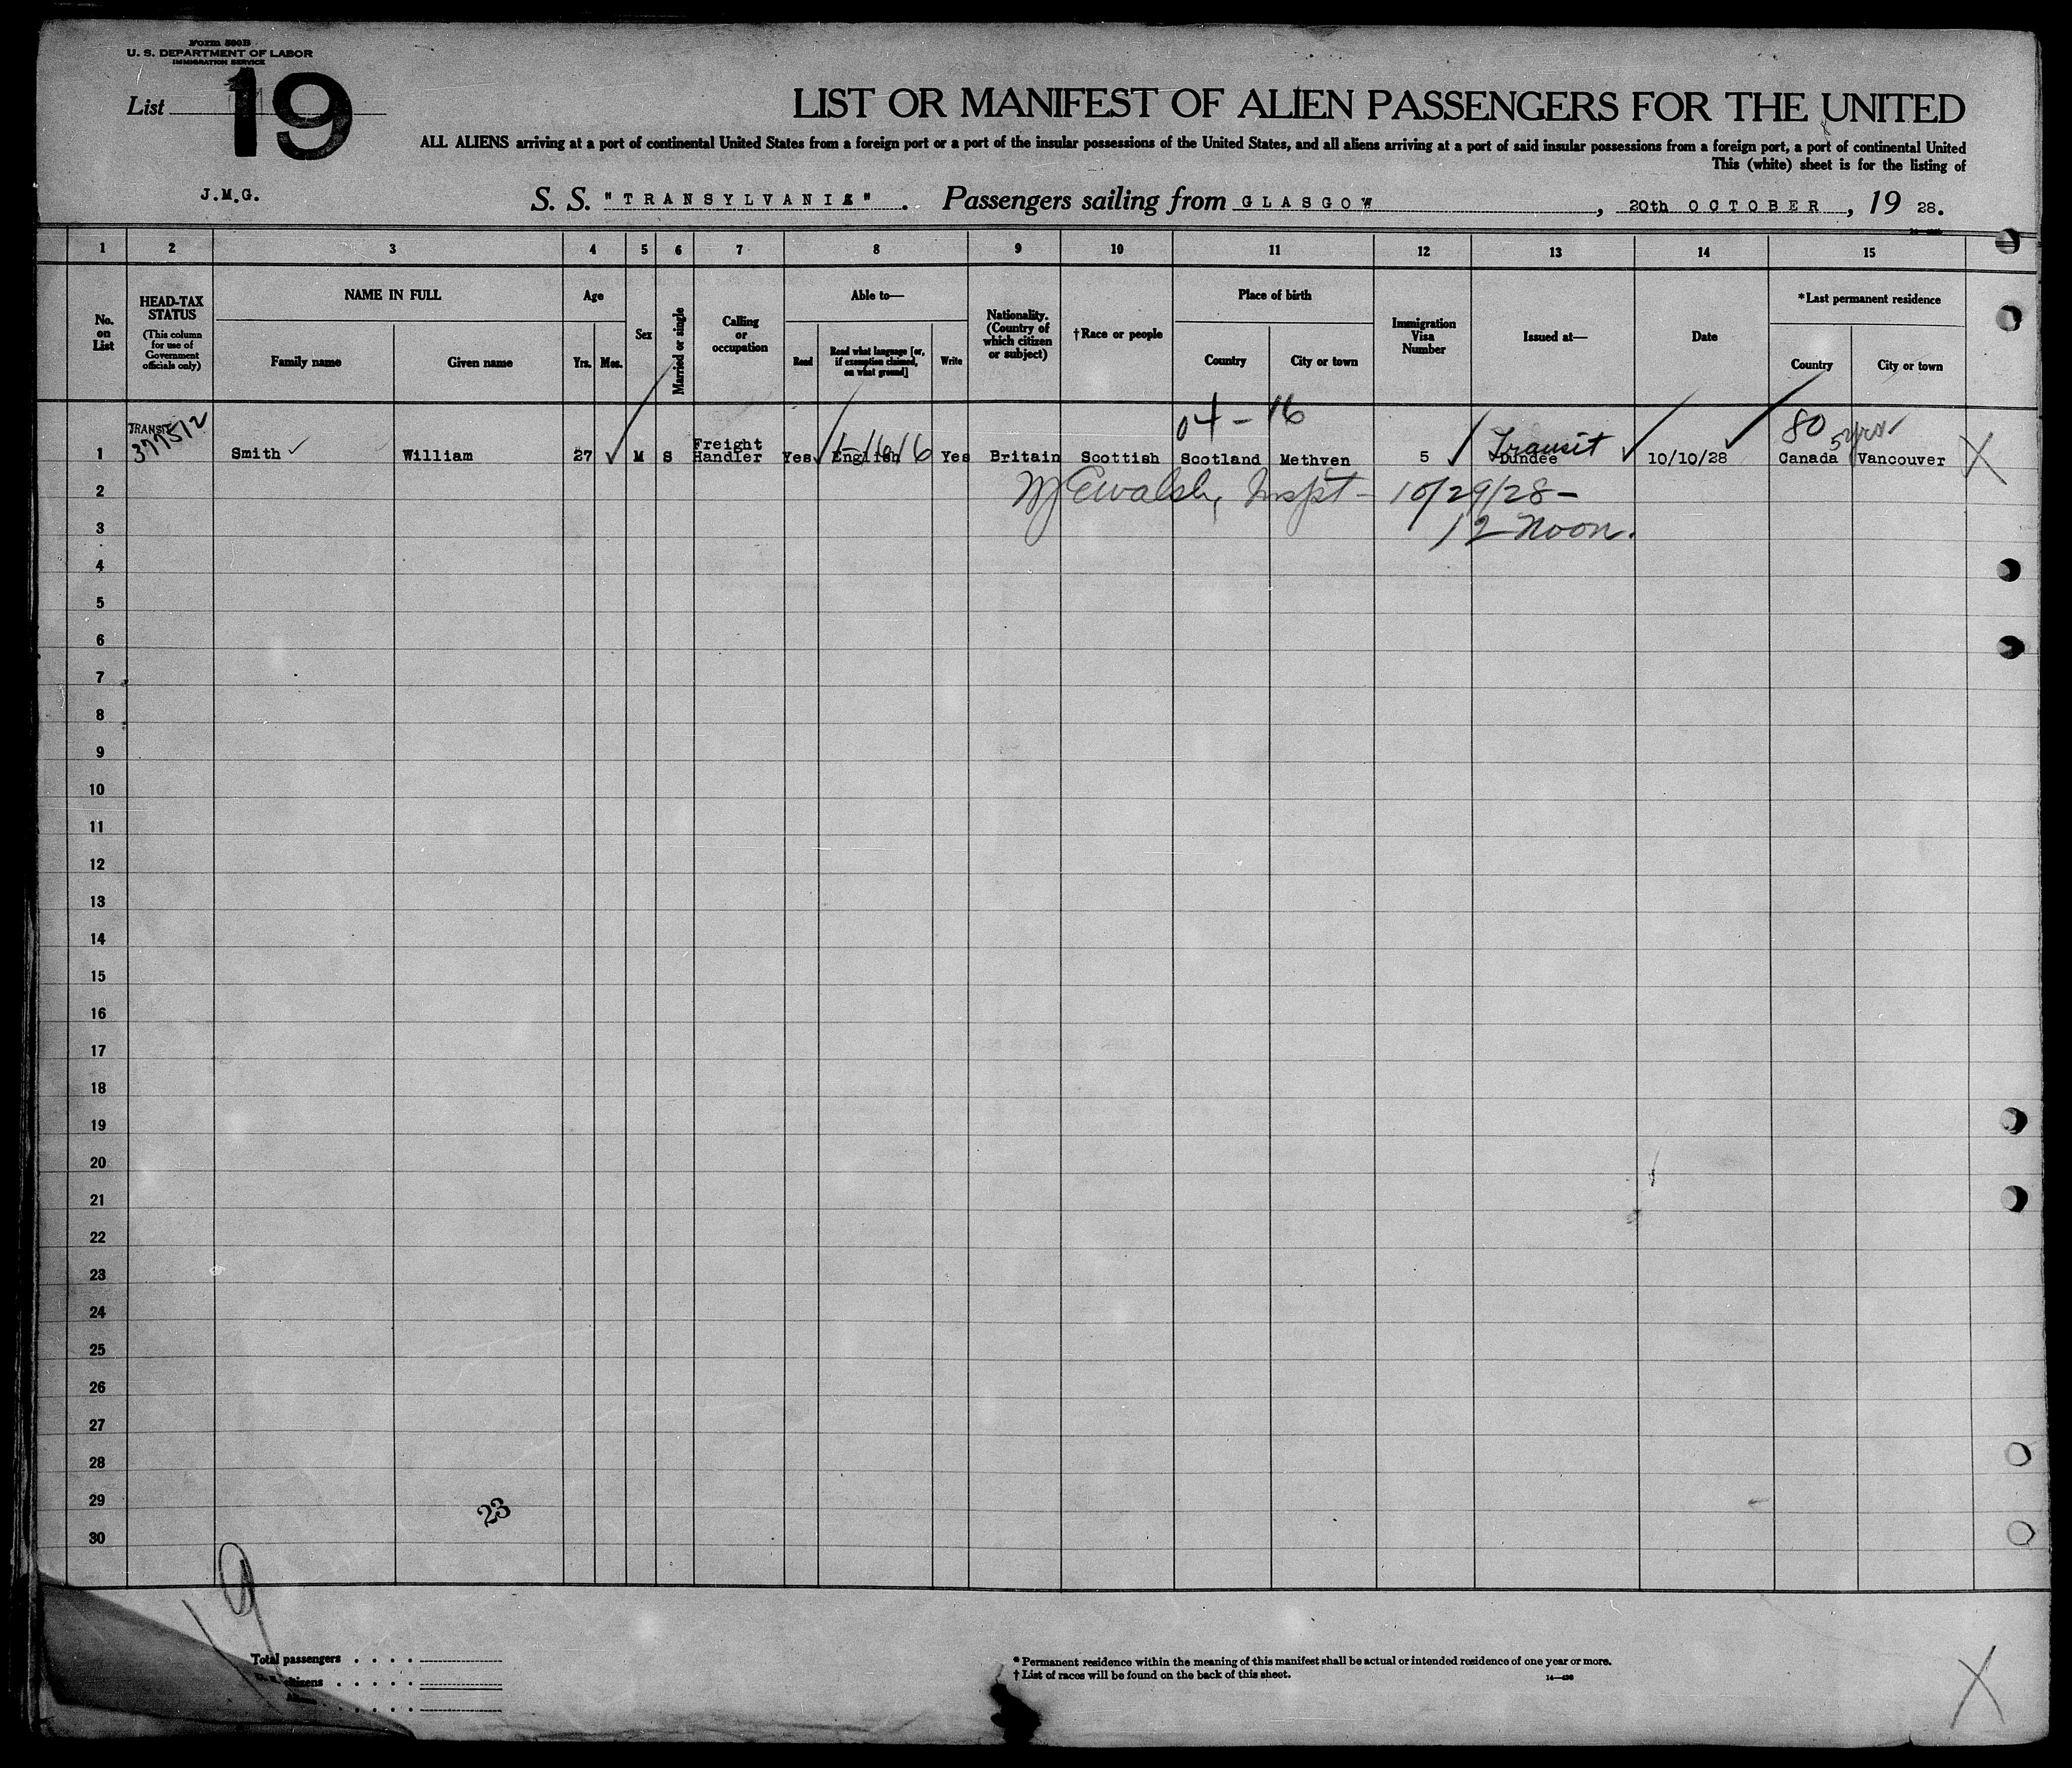 Form 500B
U. S. DEPARTMENT OF LABOR
IMMIGRATION SERVICE
List 19
LIST OR MANIFEST OF ALIEN PASSENGERS FOR THE UNITED
ALL ALIENS arriving at a port of continental United States from a foreign port or a port of the insular possessions of the United States, and all aliens arriving at a port of said insular possessions from a foreign port, a port of continental United
This (white) sheet is for the listing of
J.M.G.
S. S. "TRANSYLVANIA". Passengers sailing from GLASGOW, 20th OCTOBER, 19 28.
1 2 3 4 5 6 7 8 9 10 11 12 13 14 15
No. on List
HEAD-TAX STATUS
(This column for use of Government officials only)
NAME IN FULL
Family name Given name
Age
Yrs. Mos.
Sex
Married or single
Calling or occupation
Able to—
Read
Read what language [or, if exemption claimed, on what ground]
Write
Nationality. (Country of which citizen or subject)
†Race or people
Place of birth
Country City or town
Immigration Visa Number
Issued at—
Date
*Last permanent residence
Country City or town
04 - 16
80 5 yrs
TRANSIT
377512
Transit
1 Smith William 27 M S Freight Handler Yes English Yes Britain Scottish Scotland Methven 5 Dundee 10/10/28 Canada Vancouver X
2 Walsh, Inspt - 10/29/28 -
3 12 Noon.
4
5
6
7
8
9
10
11
12
13
14
15
16
17
18
19
20
21
22
23
24
25
26
27
28
29
30
23
19
Total passengers . . . .
U. S. citizens . . . . .
Aliens . . . . .
* Permanent residence within the meaning of this manifest shall be actual or intended residence of one year or more.
† List of races will be found on the back of this sheet.
14—420
X